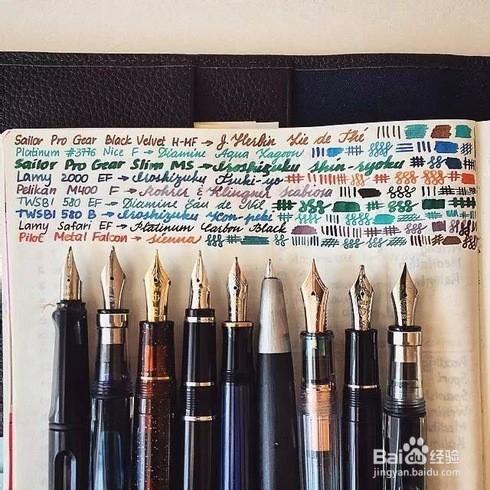 Sailor Pro Gear Black Velvet H-MF → J. Herbin Lie de Thé
Platinum #3776 Nice F → Diamine Aqua Lagoon
Sailor Pro Gear Slim MS → Iroshizuku Shin-ryoku
Lamy 2000 EF → Iroshizuku Fuyu-gaki
Pelikan M400 F → Rohrer & Klingner Scabiosa
TWSBI 580 EF → Diamine Eau de Nil
TWSBI 580 B → Iroshizuku Kon-peki
Lamy Safari EF → Platinum Carbon Black
Pilot Metal Falcon → sienna
Baidu 经验
jingyan.baidu.com